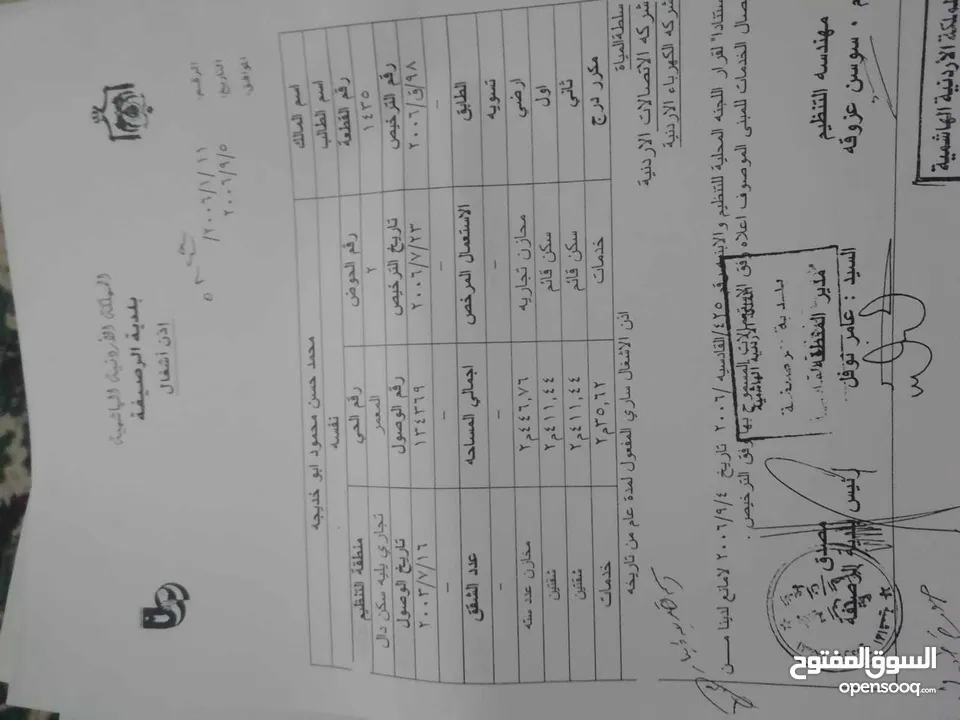 المملكة الأردنية الهاشمية
بلدية الرصيفة
إذن اشغال
الرقم: ٢٠٠٦/٦/١١/
التاريخ: ٢٠٠٦/٩/٥
المرفق:
اسم المالك محمد حسن محمود ابو خديجه
اسم الطالب نفسه
رقم القطعة رقم الحوض رقم الحي منطقة التنظيم
١٤٣٥ ٢ المعمر تجاري يليه سكن دال
رقم الترخيص تاريخ الترخيص رقم الوصول تاريخ الوصول
٩٨/ق/٢٠٠٦ ٢٠٠٦/٧/٢٣ ١٣٤٣٦٩ ٢٠٠٣/٧/١٦
- - - -
الطابق الاستعمال المرخص اجمالي المساحه عدد الشقق
تسويه - - -
ارضي مخازن تجاريه ٤٤٦,٧٦م٢ مخازن عدد سته
اول سكن قائم ٤١١,٤٤م٢ شقتين
ثاني سكن قائم ٤١١,٤٤م٢ شقتين
مكرر درج خدمات ٣٥,٦٢م٢ خدمات
اذن الاشغال ساري المفعول لمدة عام من تاريخه
سلطة المياة
شركه الاتصالات الاردنية
شركه الكهرباء الاردنية
استنادا" لقرار اللجنه المحلية للتنظيم والابنيه رقم ٤٢٥/القادسيه/٢٠٠٦ تاريخ ٢٠٠٦/٩/٤ لامانع لدينا من
ايصال الخدمات للمبنى الموصوف اعلاه وفق المسموح بها وفق الترخيص.
المملكة الأردنية الهاشمية
بلدية الرصيفة
مهندسه التنظيم
م. سوسن عزوقه
مدير المنطقة
السيد: عامر نوفل
مصدق
رئيس بلدية الرصيفة
المملكة الأردنية الهاشمية
السوق المفتوح
opensooq.com